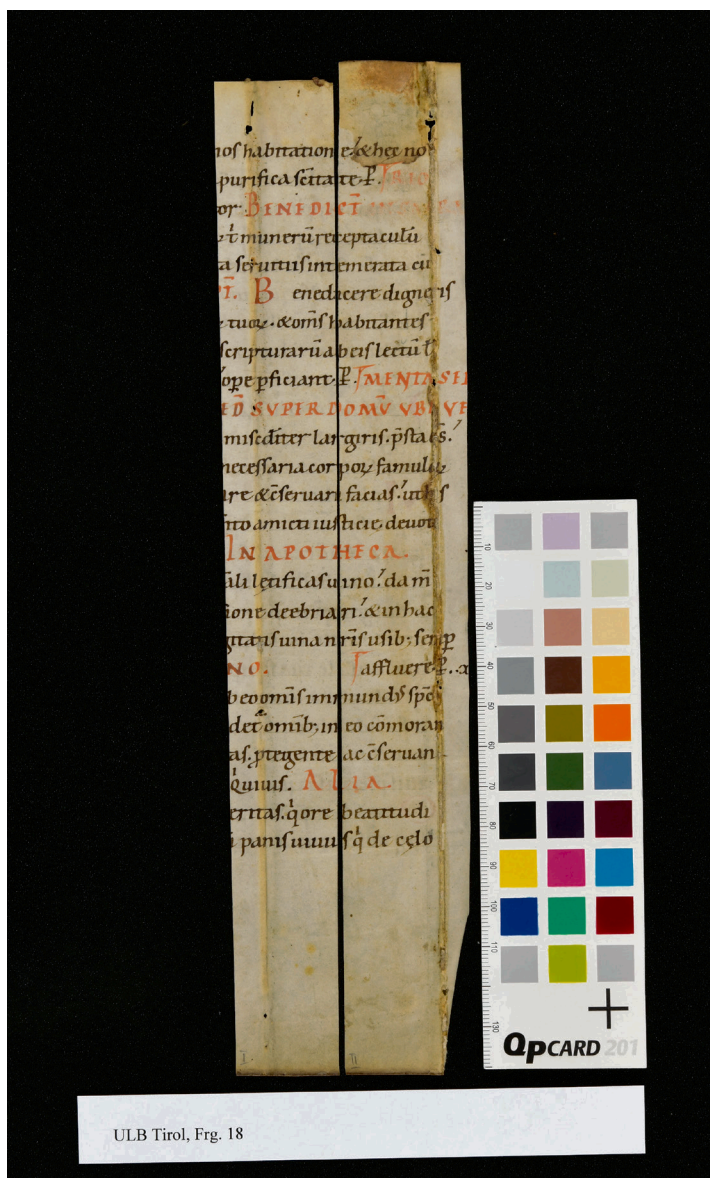 nos habitatione, & hęc no
purifica scītate. P.
or. BENEDICT̄
t̄ munerū receptaculū
a seruitus intemerata cū
B enedicere digneris
tuoꝝ. & om̄s habitantes
scripturarū ab eis lectū t̄
oꝑe ꝑficiant. P. MENTA SEI
SUPER DOMV̄ VBI VE
misc̄diter largiris. p̄sta
necessaria corpoꝝ famuloꝝ
re & c̄seruari facias. ut his
to amicti iusticię deuot
IN APOTHECA.
ali lętificas uino. da m̄
ione deebriari. & in hac
uina nr̄is usib; semꝑ
NO. affluere. P.
beo omīs immund
det omīb; in eo cōmoran
as. ꝓtegente ac c̄seruan
q̇uiuis. ALIA.
eritas. q̇ ore beatitudi
panis uiuus q̇ de cęlo
I. II
ULB Tirol, Frg. 18
10 20 30 40 50 60 70 80 90 100 110 130
QPCARD 201